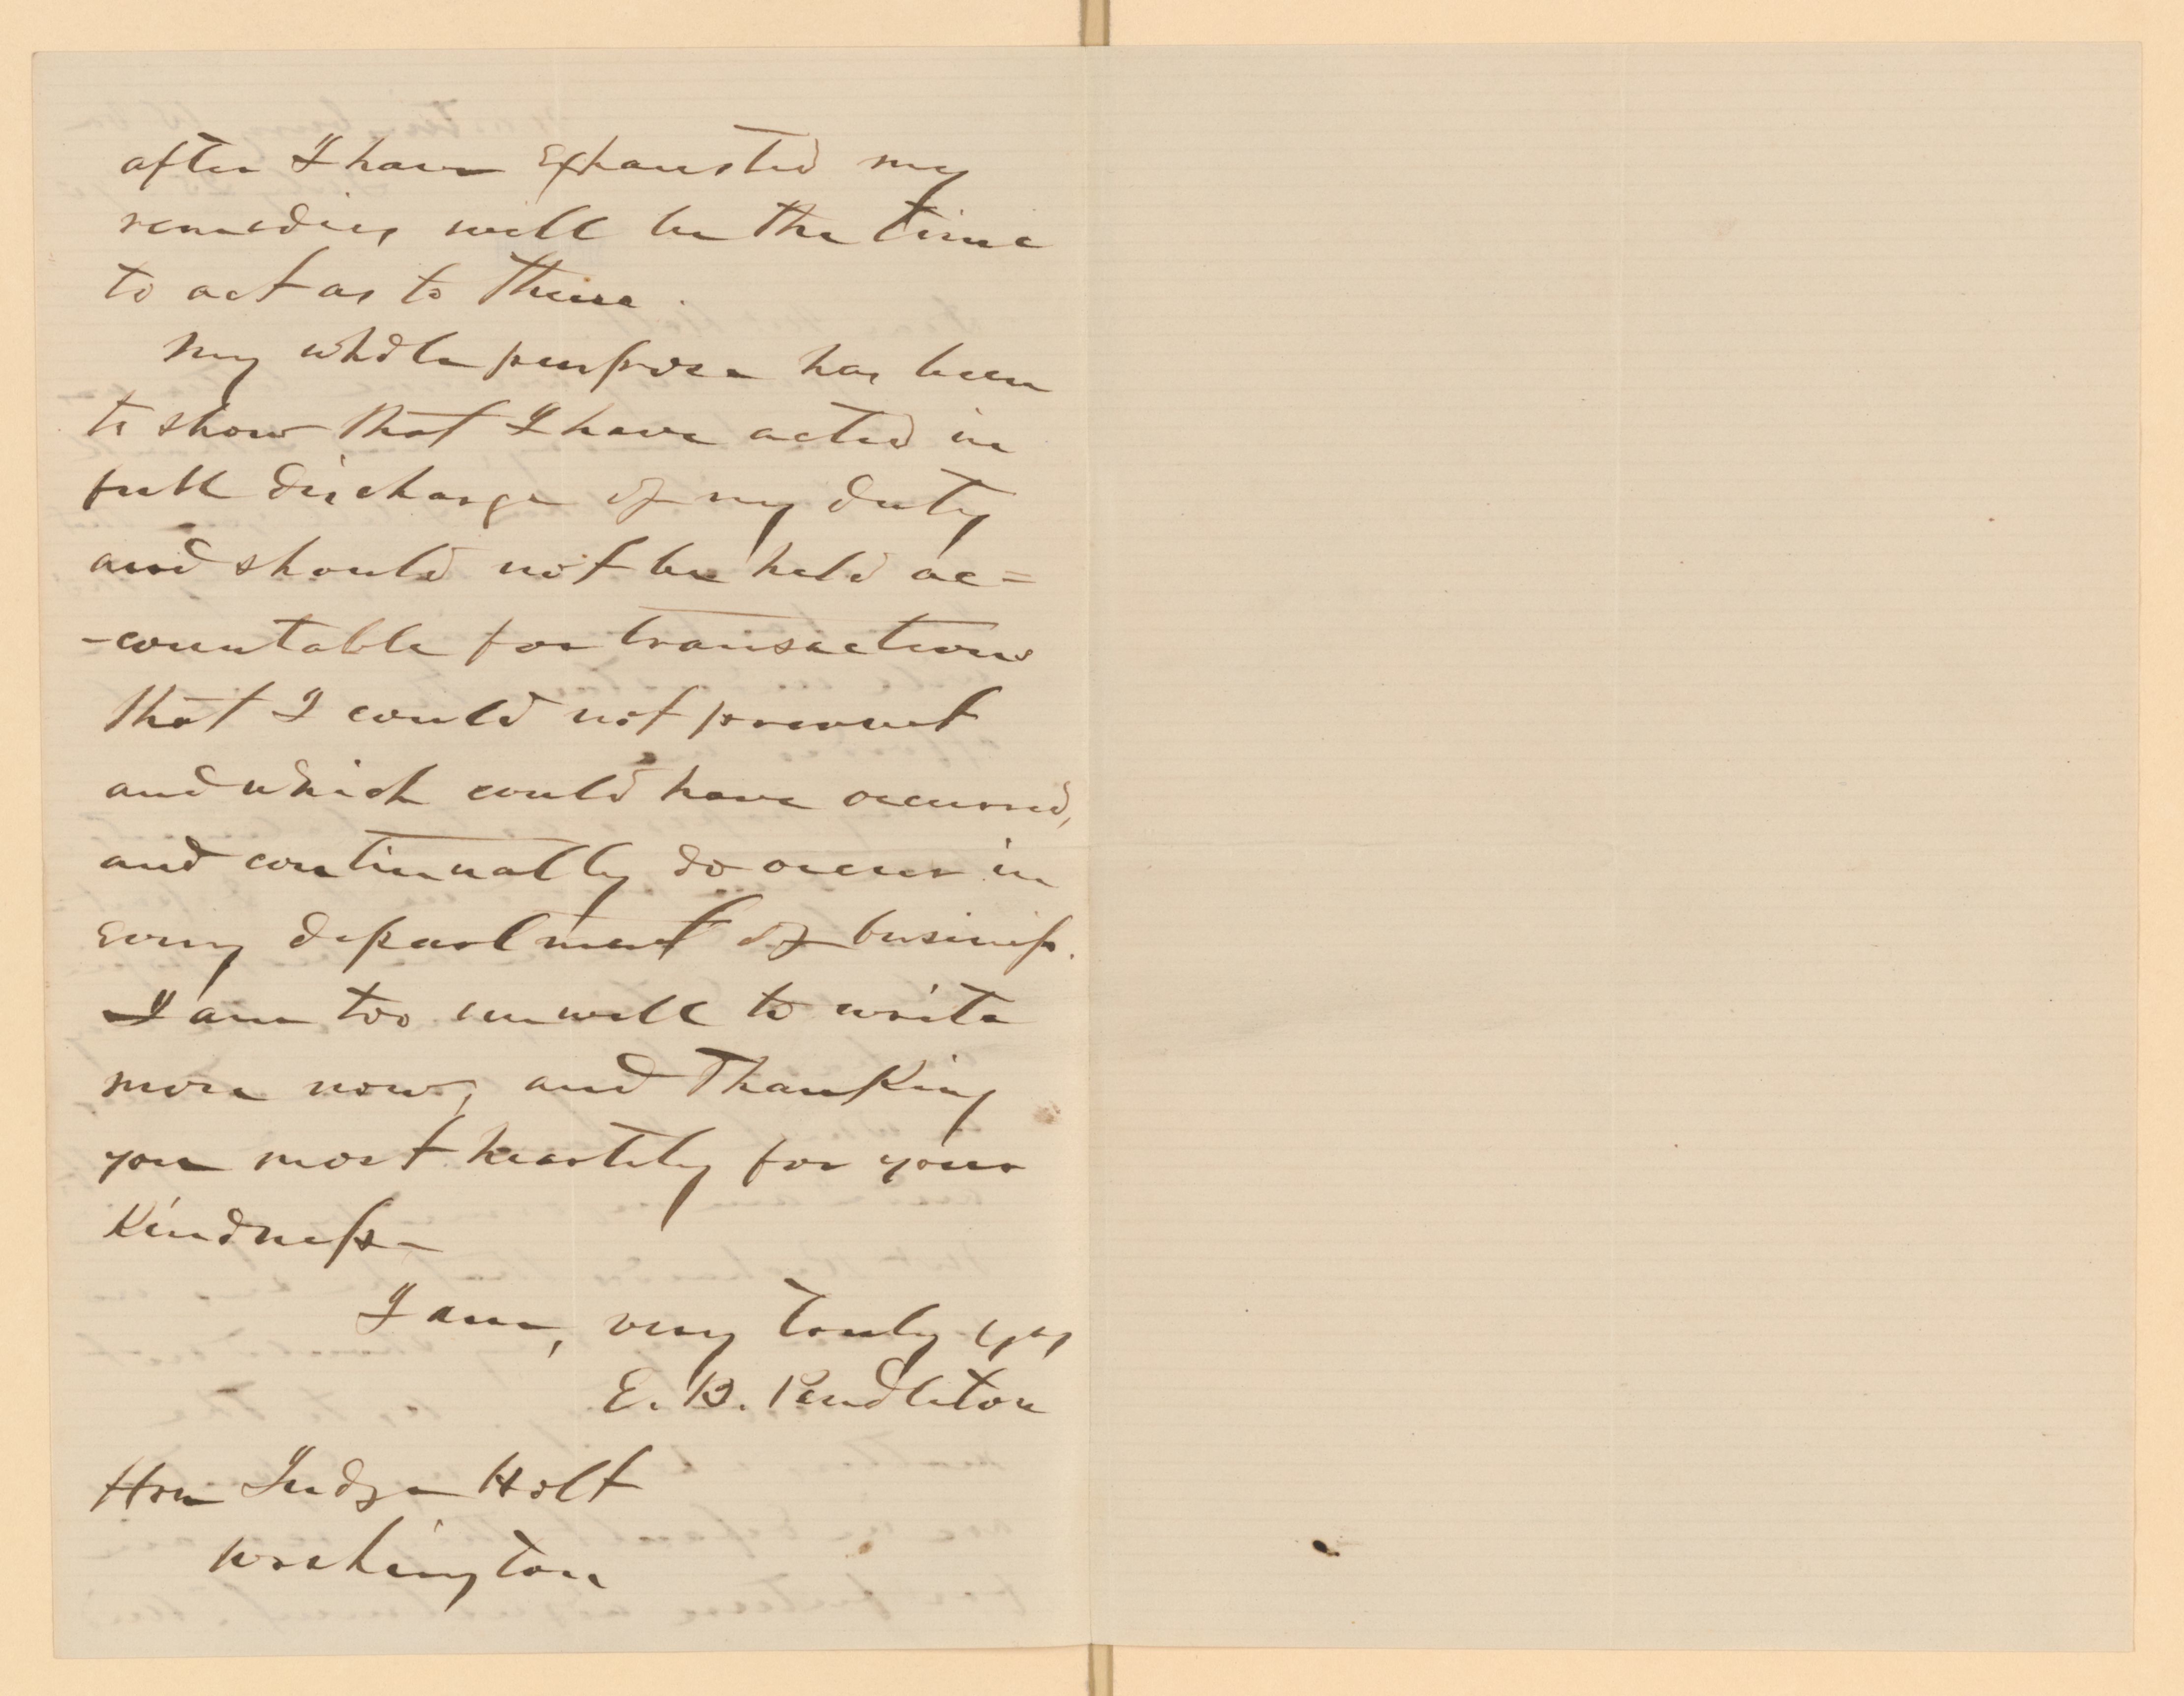 after I have exhausted my
remedies will be the time
to act as to these.
My whole purpose has been
to show that I have acted in
full discharge of my duty
and should not be held ac=
-countable for transactions
that I could not prevent
and which could have occurred,
and continually do occur in
every department of business.
I am too unwell to write
more now, and thanking
you most heartily for your
Kindness-
I am, very truly yrs
E. B. Pendleton
Hon Judge Holt
Washington